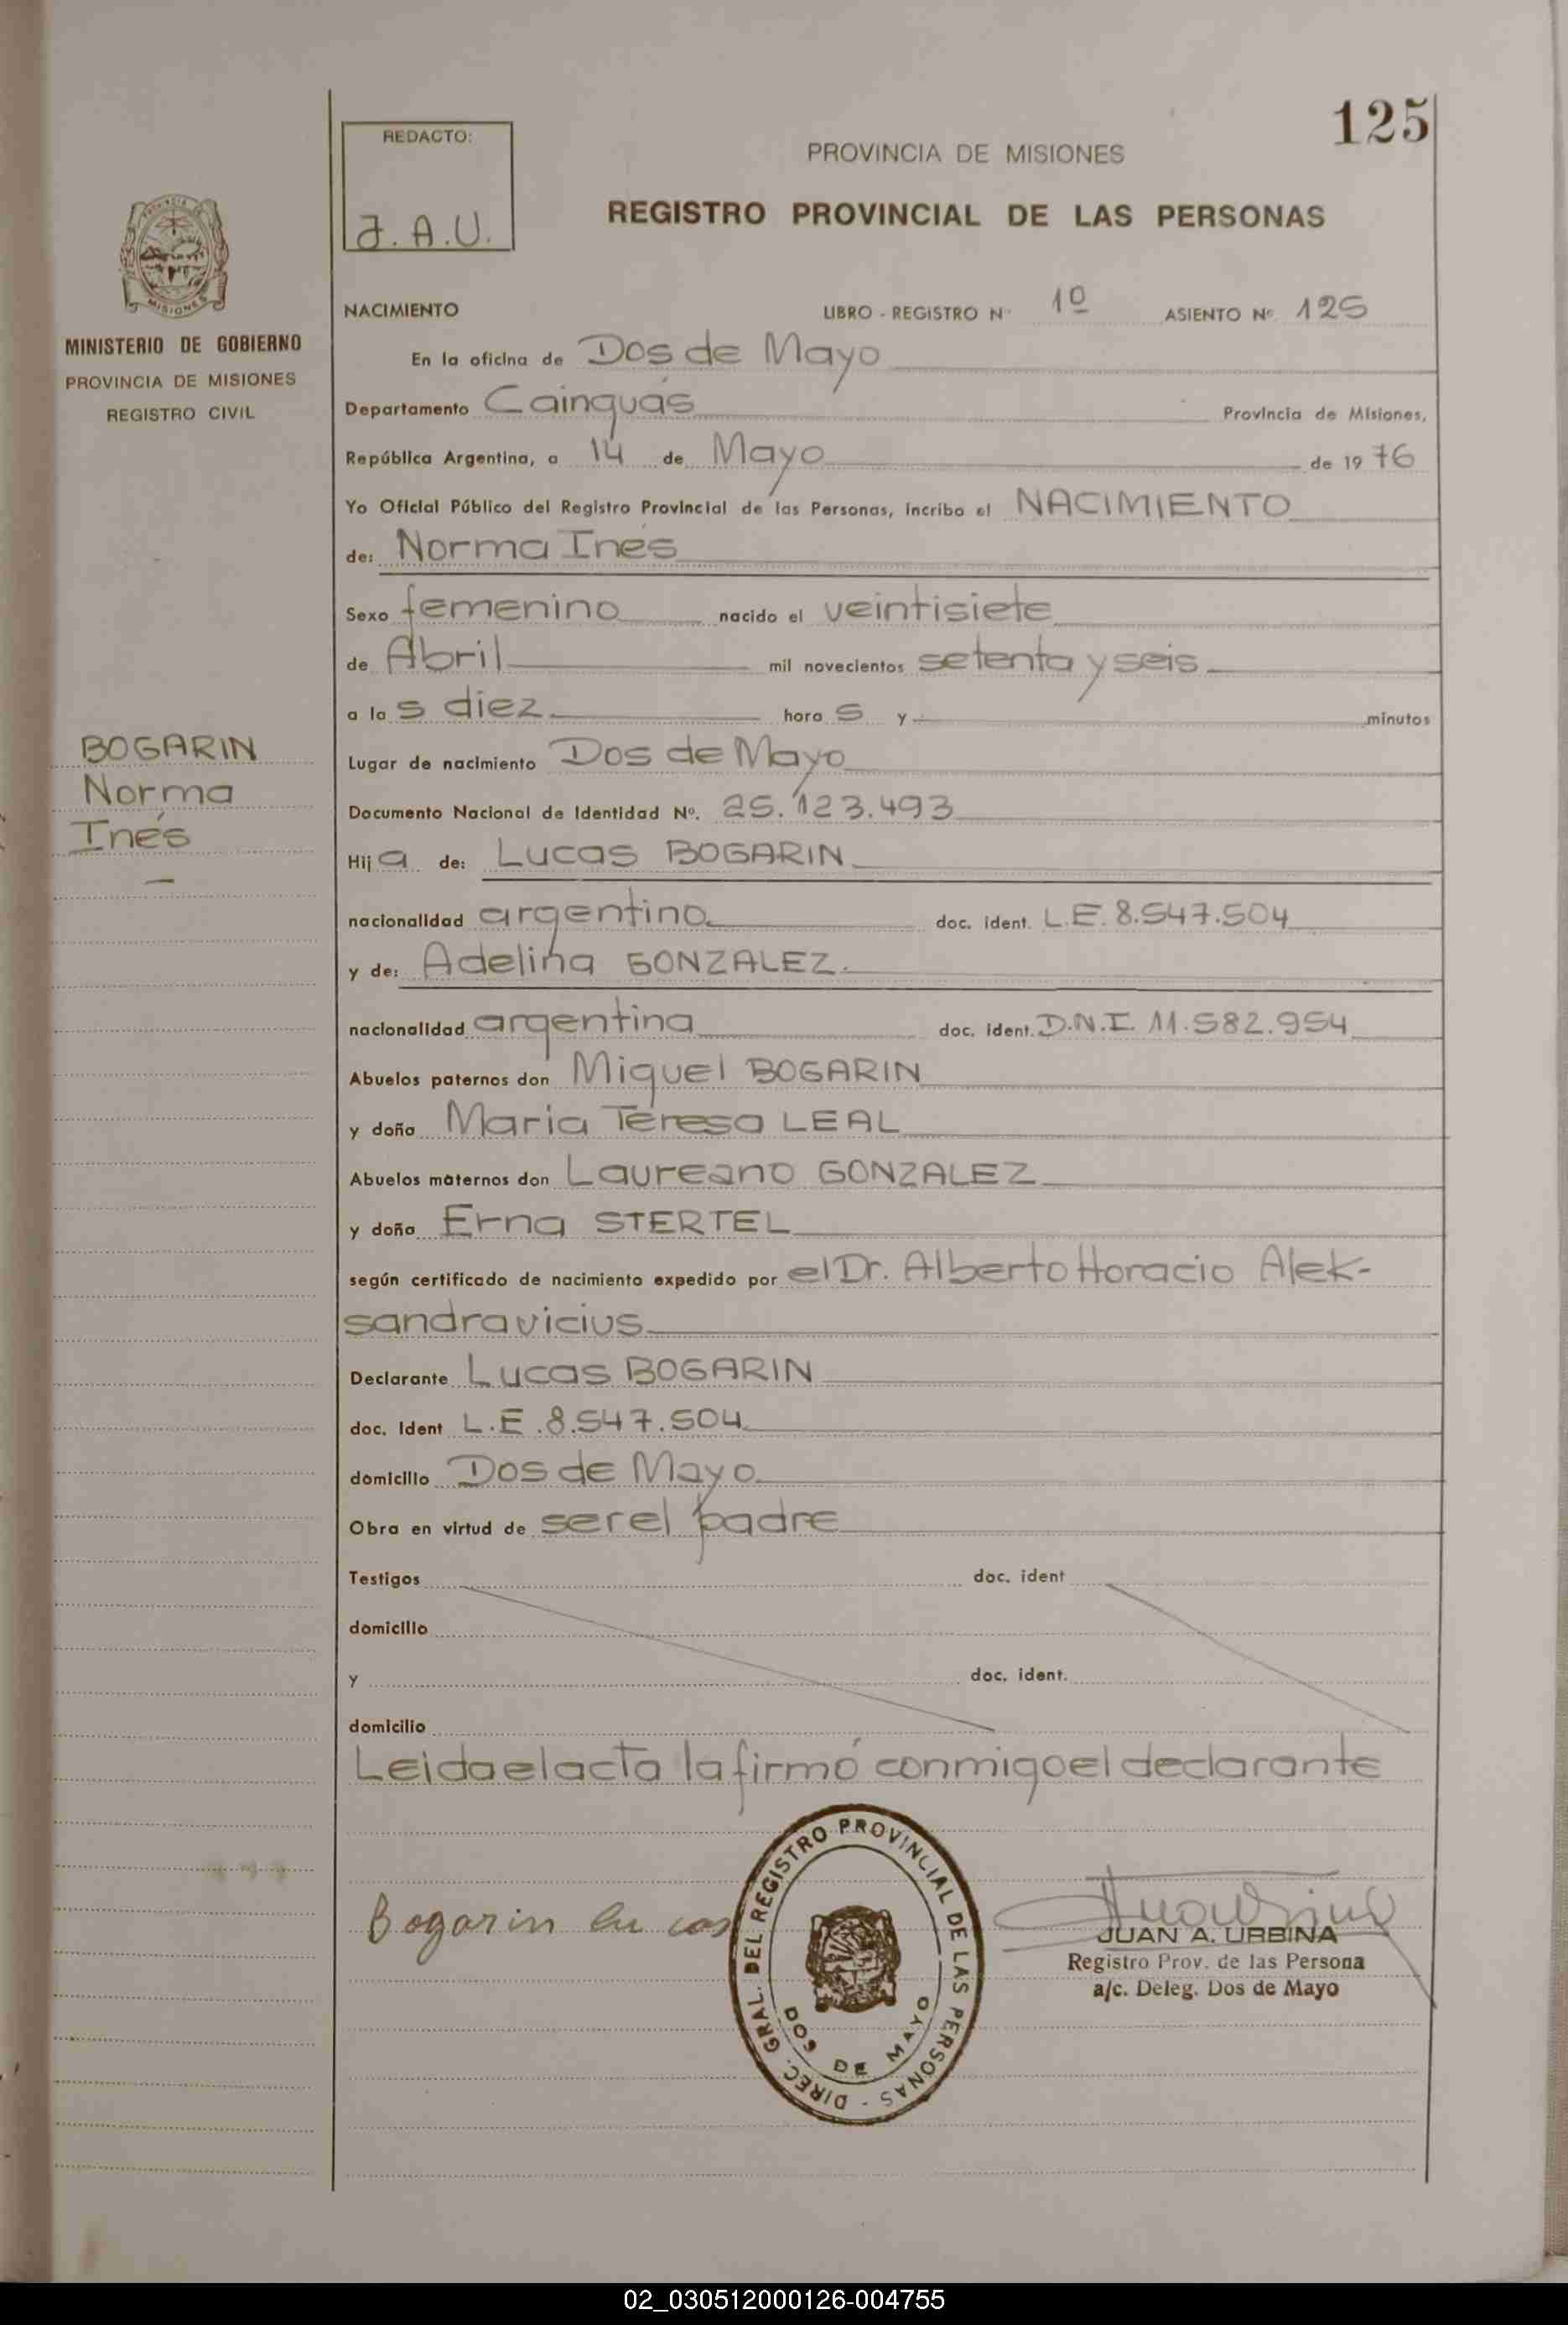 125
REDACTO:
J.A.U.
PROVINCIA DE MISIONES
REGISTRO PROVINCIAL DE LAS PERSONAS
MISIONES
MINISTERIO DE GOBIERNO
PROVINCIA DE MISIONES
REGISTRO CIVIL
BOGARIN
Norma
Inés
NACIMIENTO LIBRO - REGISTRO Nº 1º ASIENTO Nº 125
En la oficina de Dos de Mayo
Departamento Cainguás Provincia de Misiones,
República Argentina, a 14 de Mayo de 1976
Yo Oficial Público del Registro Provincial de las Personas, incribo el NACIMIENTO
de: Norma Inés
Sexo femenino nacido el veintisiete
de Abril mil novecientos setenta y seis
a las diez horas y minutos
Lugar de nacimiento Dos de Mayo
Documento Nacional de Identidad Nº. 25.123.493
Hija de: Lucas BOGARIN
nacionalidad argentino doc. ident. L.E. 8.547.504
y de: Adelina GONZALEZ.
nacionalidad argentina doc. ident. D.N.I. 11.582.954
Abuelos paternos don Miguel BOGARIN
y doña Maria Teresa LEAL
Abuelos maternos don Laureano GONZALEZ
y doña Erna STERTEL
según certificado de nacimiento expedido por el Dr. Alberto Horacio Alek-
sandravicius
Declarante Lucas BOGARIN
doc. ident L.E. 8.547.504
domicilio Dos de Mayo
Obra en virtud de ser el padre
Testigos doc. ident
domicilio
y doc. ident.
domicilio
Leida el acta la firmó conmigo el declarante
Bogarin Lucas
DIREC. GRAL. DEL REGISTRO PROVINCIAL DE LAS PERSONAS -
DOS DE MAYO
JUAN A. URBINA
Registro Prov. de las Persona
a/c. Deleg. Dos de Mayo
02_030512000126-004755